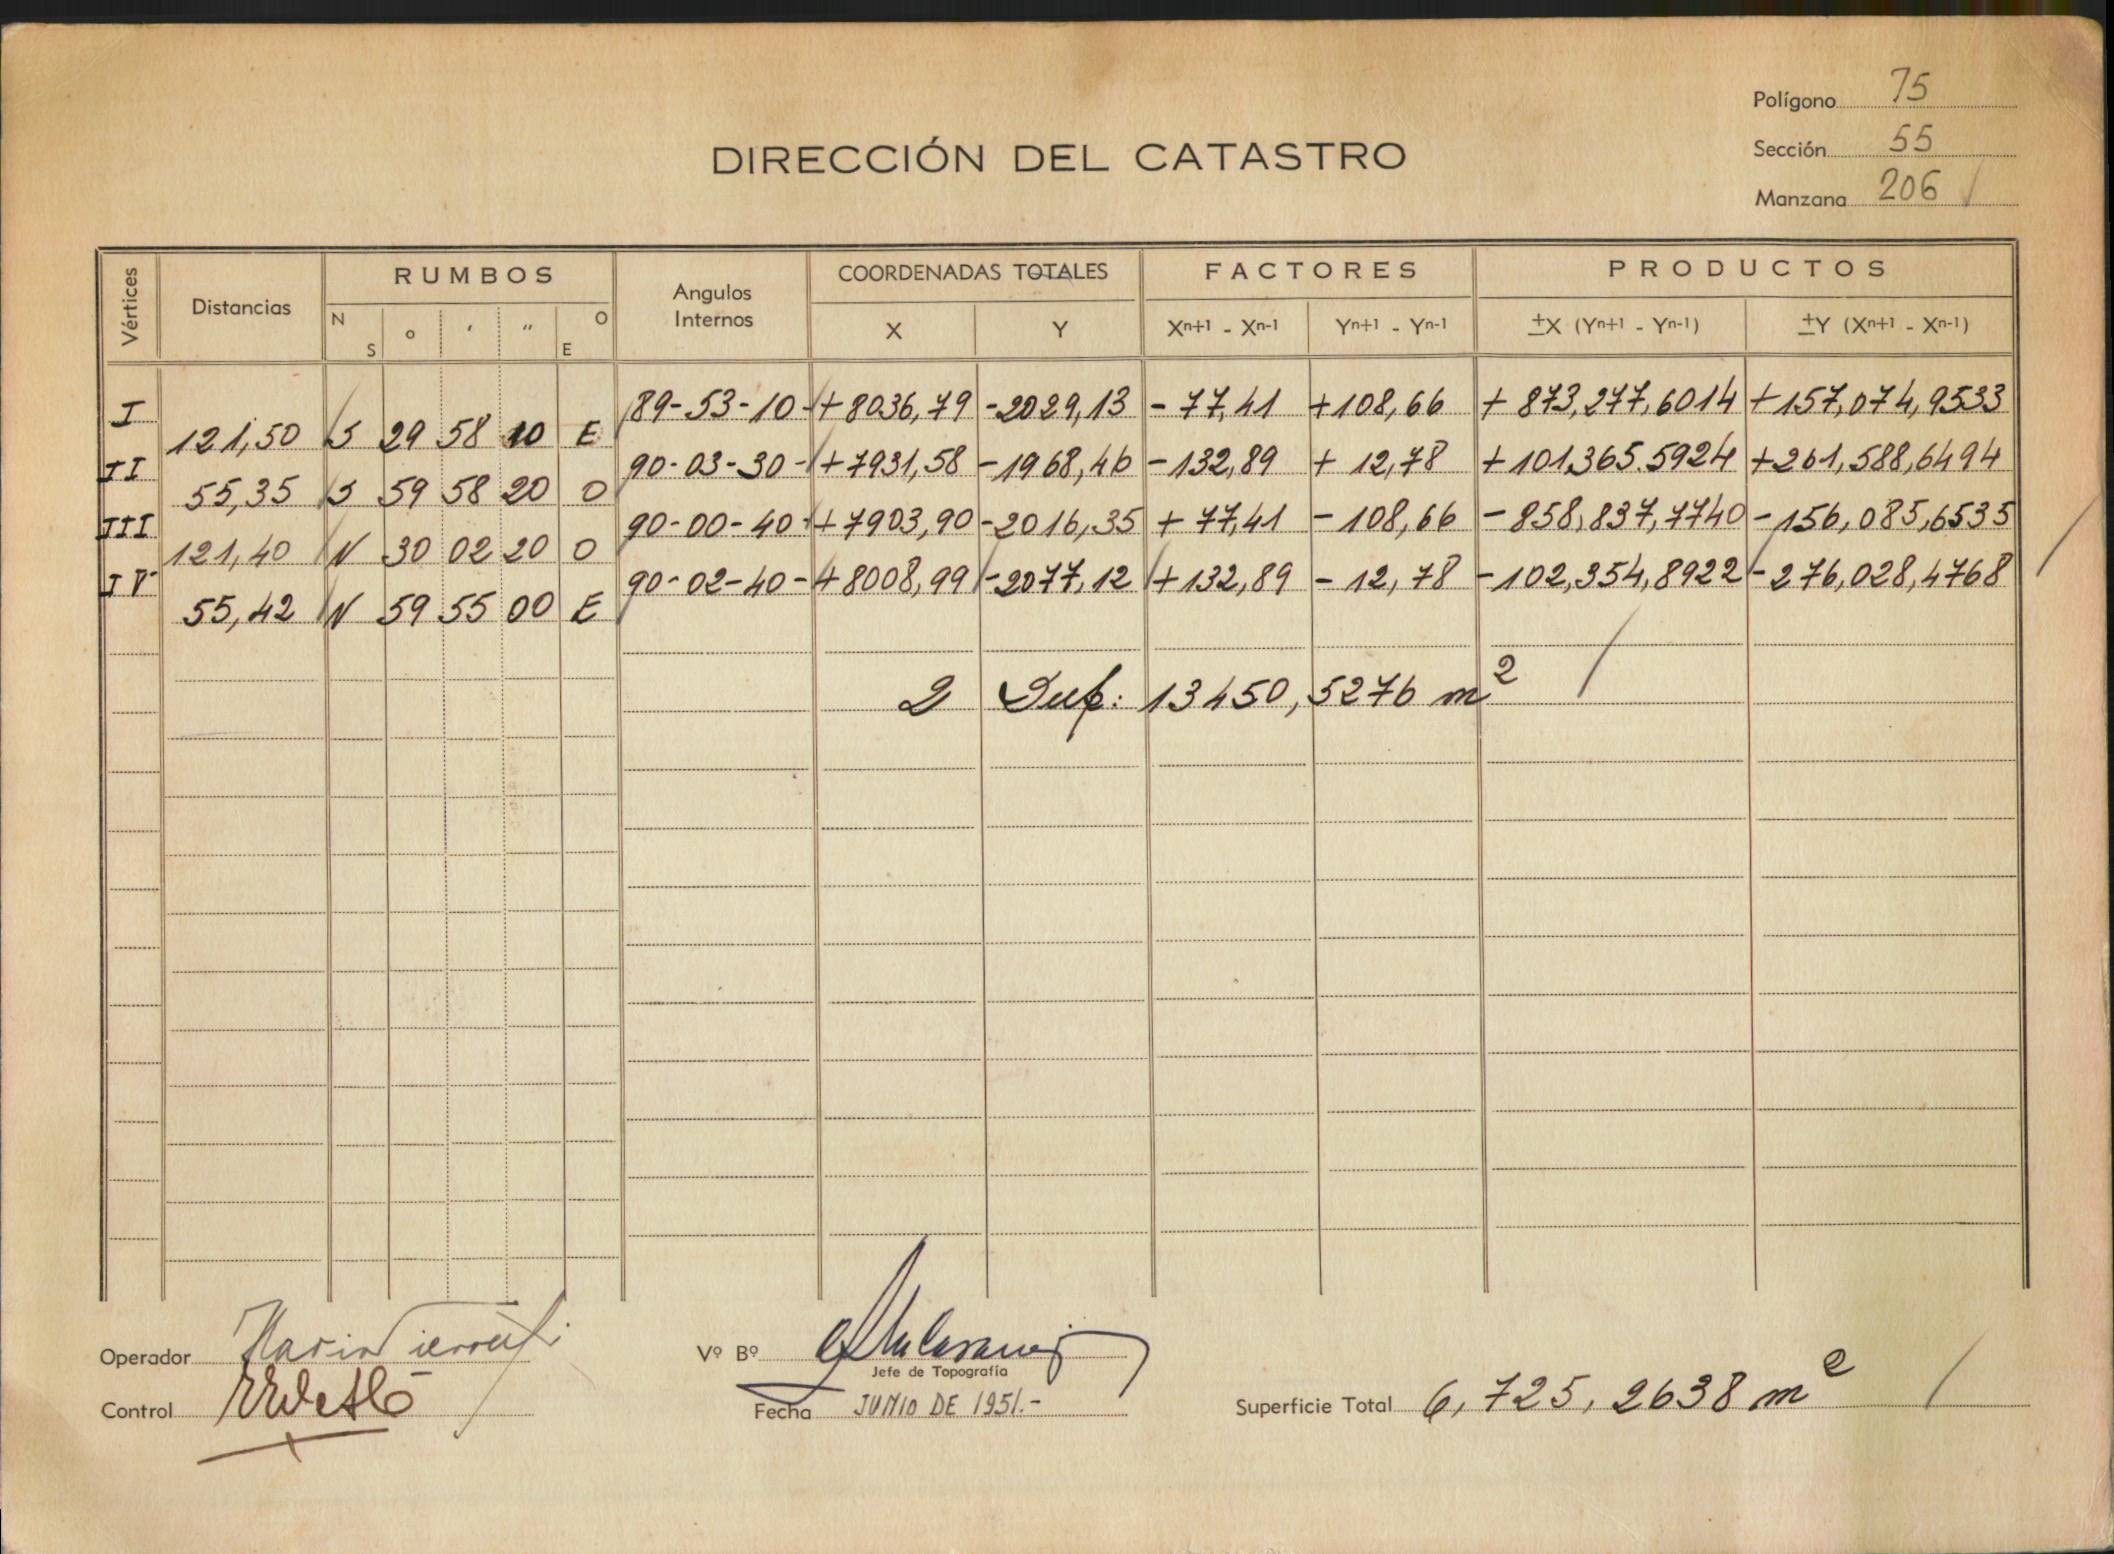 Polígono 75
DIRECCIÓN DEL CATASTRO
Sección 55
Manzana 206
Vértices Distancias RUMBOS Angulos Internos COORDENADAS TOTALES FACTORES PRODUCTOS
N S ° ′ ″ O E X Y Xn+1 - Xn-1 Yn+1 - Yn-1 ±X (Yn+1 - Yn-1) ±Y (Xn+1 - Xn-1)
I 89-53-10- +8036,79 -2029,13 -77,41 +108,66 +873,277,6014 +157,074,9533
121,50 S 29 58 10 E
II 90-03-30- +7931,58 -1968,46 -132,89 +12,78 +101,365.5924 +261,588,6494
55,35 S 59 58 20 O
III 90-00-40- +7903,90 -2016,35 +77,41 -108,66 -858,837,7740 -156,085,6535
121,40 N 30 02 20 O
IV 90-02-40- +8008,99 -2077,12 +132,89 -12,78 -102,354,8922 -276,028,4768
55,42 N 59 55 00 E
2 Sup: 13450,5276 m2
Operador
Vº Bº
Jefe de Topografía
Control
Fecha JUNIO DE 1951.-
Superficie Total 6,725,2638 m2